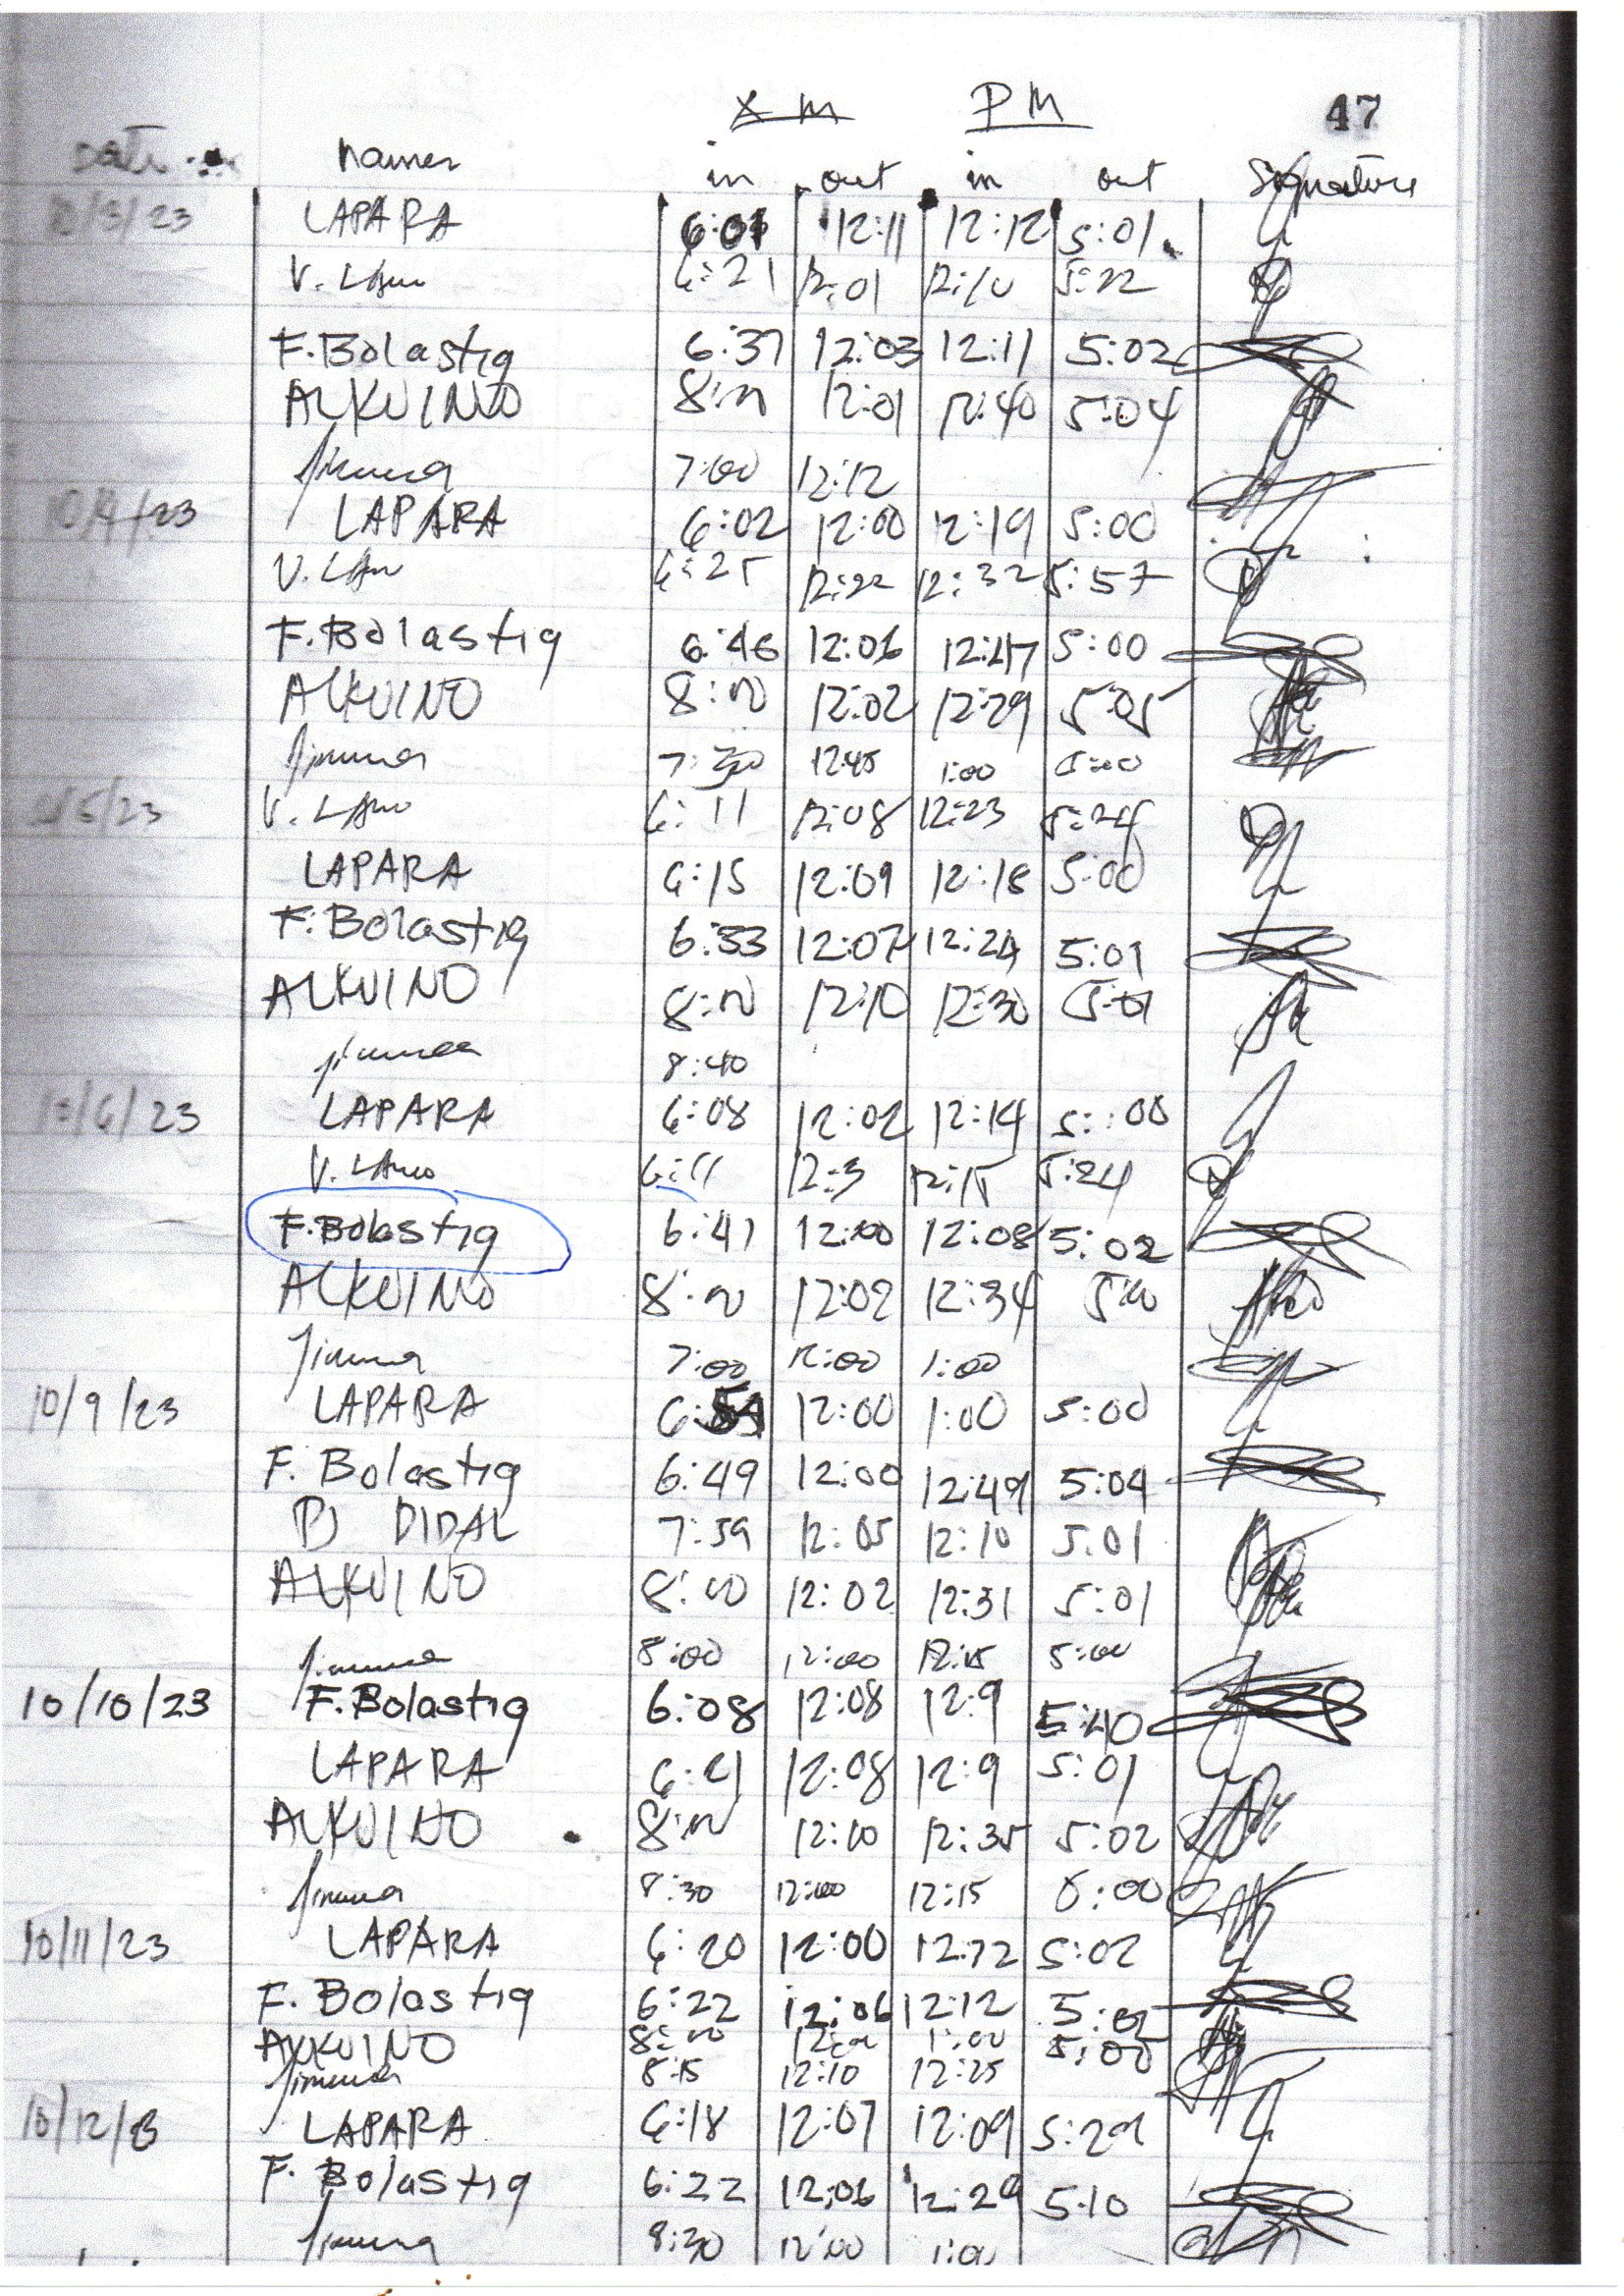 AM PM 47
Date Names in out in out Signature
10/3/23 LAPARA 6:01 12:11 12:12 5:01
V. LAno 6:21 12:01 12:10 5:22
F.Bolastig 6:37 12:03 12:11 5:02
ALKUINO 8:00 12:01 12:40 5:04
7:00 12:12
10/4/23 LAPARA 6:02 12:00 12:19 5:00
V. LAno 6:25 12:22 12:32 5:57
F.Bolastig 6:46 12:06 12:47 5:00
ALKUINO 8:00 12:02 12:29 5:05
7:30 12:45 1:00 5:00
5/23 V. LAno 6:11 12:08 12:23 5:24
LAPARA 6:15 12:09 12:18 5:00
F.Bolastig 6:33 12:07 12:24 5:01
ALKUINO 8:00 12:10 12:30 5:01
8:40
10/6/23 LAPARA 6:08 12:02 12:14 5:00
V. LAno 6:11 12:3 12:15 5:24
F.Bolastig 6:41 12:00 12:08 5:02
ALKUINO 8:00 12:02 12:34 5:00
7:00 12:00 1:00
10/9/23 LAPARA 12:00 1:00 5:00
F. Bolastig 6:49 12:00 12:49 5:04
DIDAL 7:59 12:05 12:10 5:01
ALKUINO 8:00 12:02 12:31 5:01
8:00 12:00 12:15 5:00
10/10/23 F.Bolastig 6:08 12:08 12:9 5:40
LAPARA 6:21 12:08 12:9 5:01
ALKUINO 8:00 12:10 12:35 5:02
8:30 12:00 12:15 5:00
10/11/23 LAPARA 6:20 12:00 5:02
F. Bolastig 6:22 12:06 12:12
ALKUINO 8:00 1:00 5:00
8:15 12:10 12:25
LAPARA 6:18 12:07 12:09 5:29
F. Bolastig 6:22 12:06 12:29 5:10
8:30 12:00 1:00